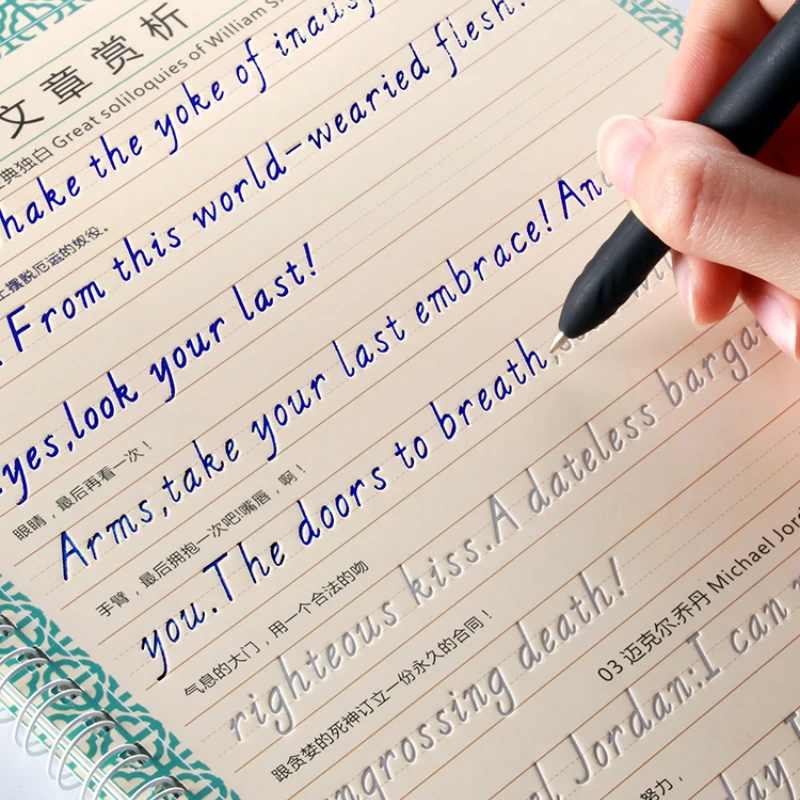 文章赏析
典独白 Great soliloquies of William S
hake the yoke of inaus
上摆脱厄运的奴役。
From this world-wearied flesh.
yes,look your last!
眼睛，最后再看一次！
Arms,take your last embrace! An
手臂，最后拥抱一次吧!嘴唇，啊！
you.The doors to breath,
气息的大门，用一个合法的吻
righteous kiss.A dateless barga
跟贪婪的死神订立一份永久的合同！
ngrossing death!
03 迈克尔.乔丹 Michael Jord
l Jordan:I can
努力，
day I